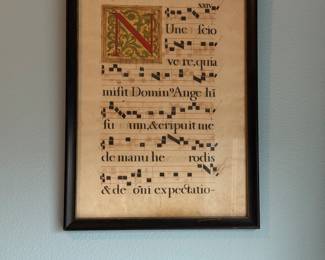 XXIV
Nunc scio
vere, quia
misit Dominꝰ Angelū
suum, & eripuit me
de manu he rodis
& de oṁi expectatio-